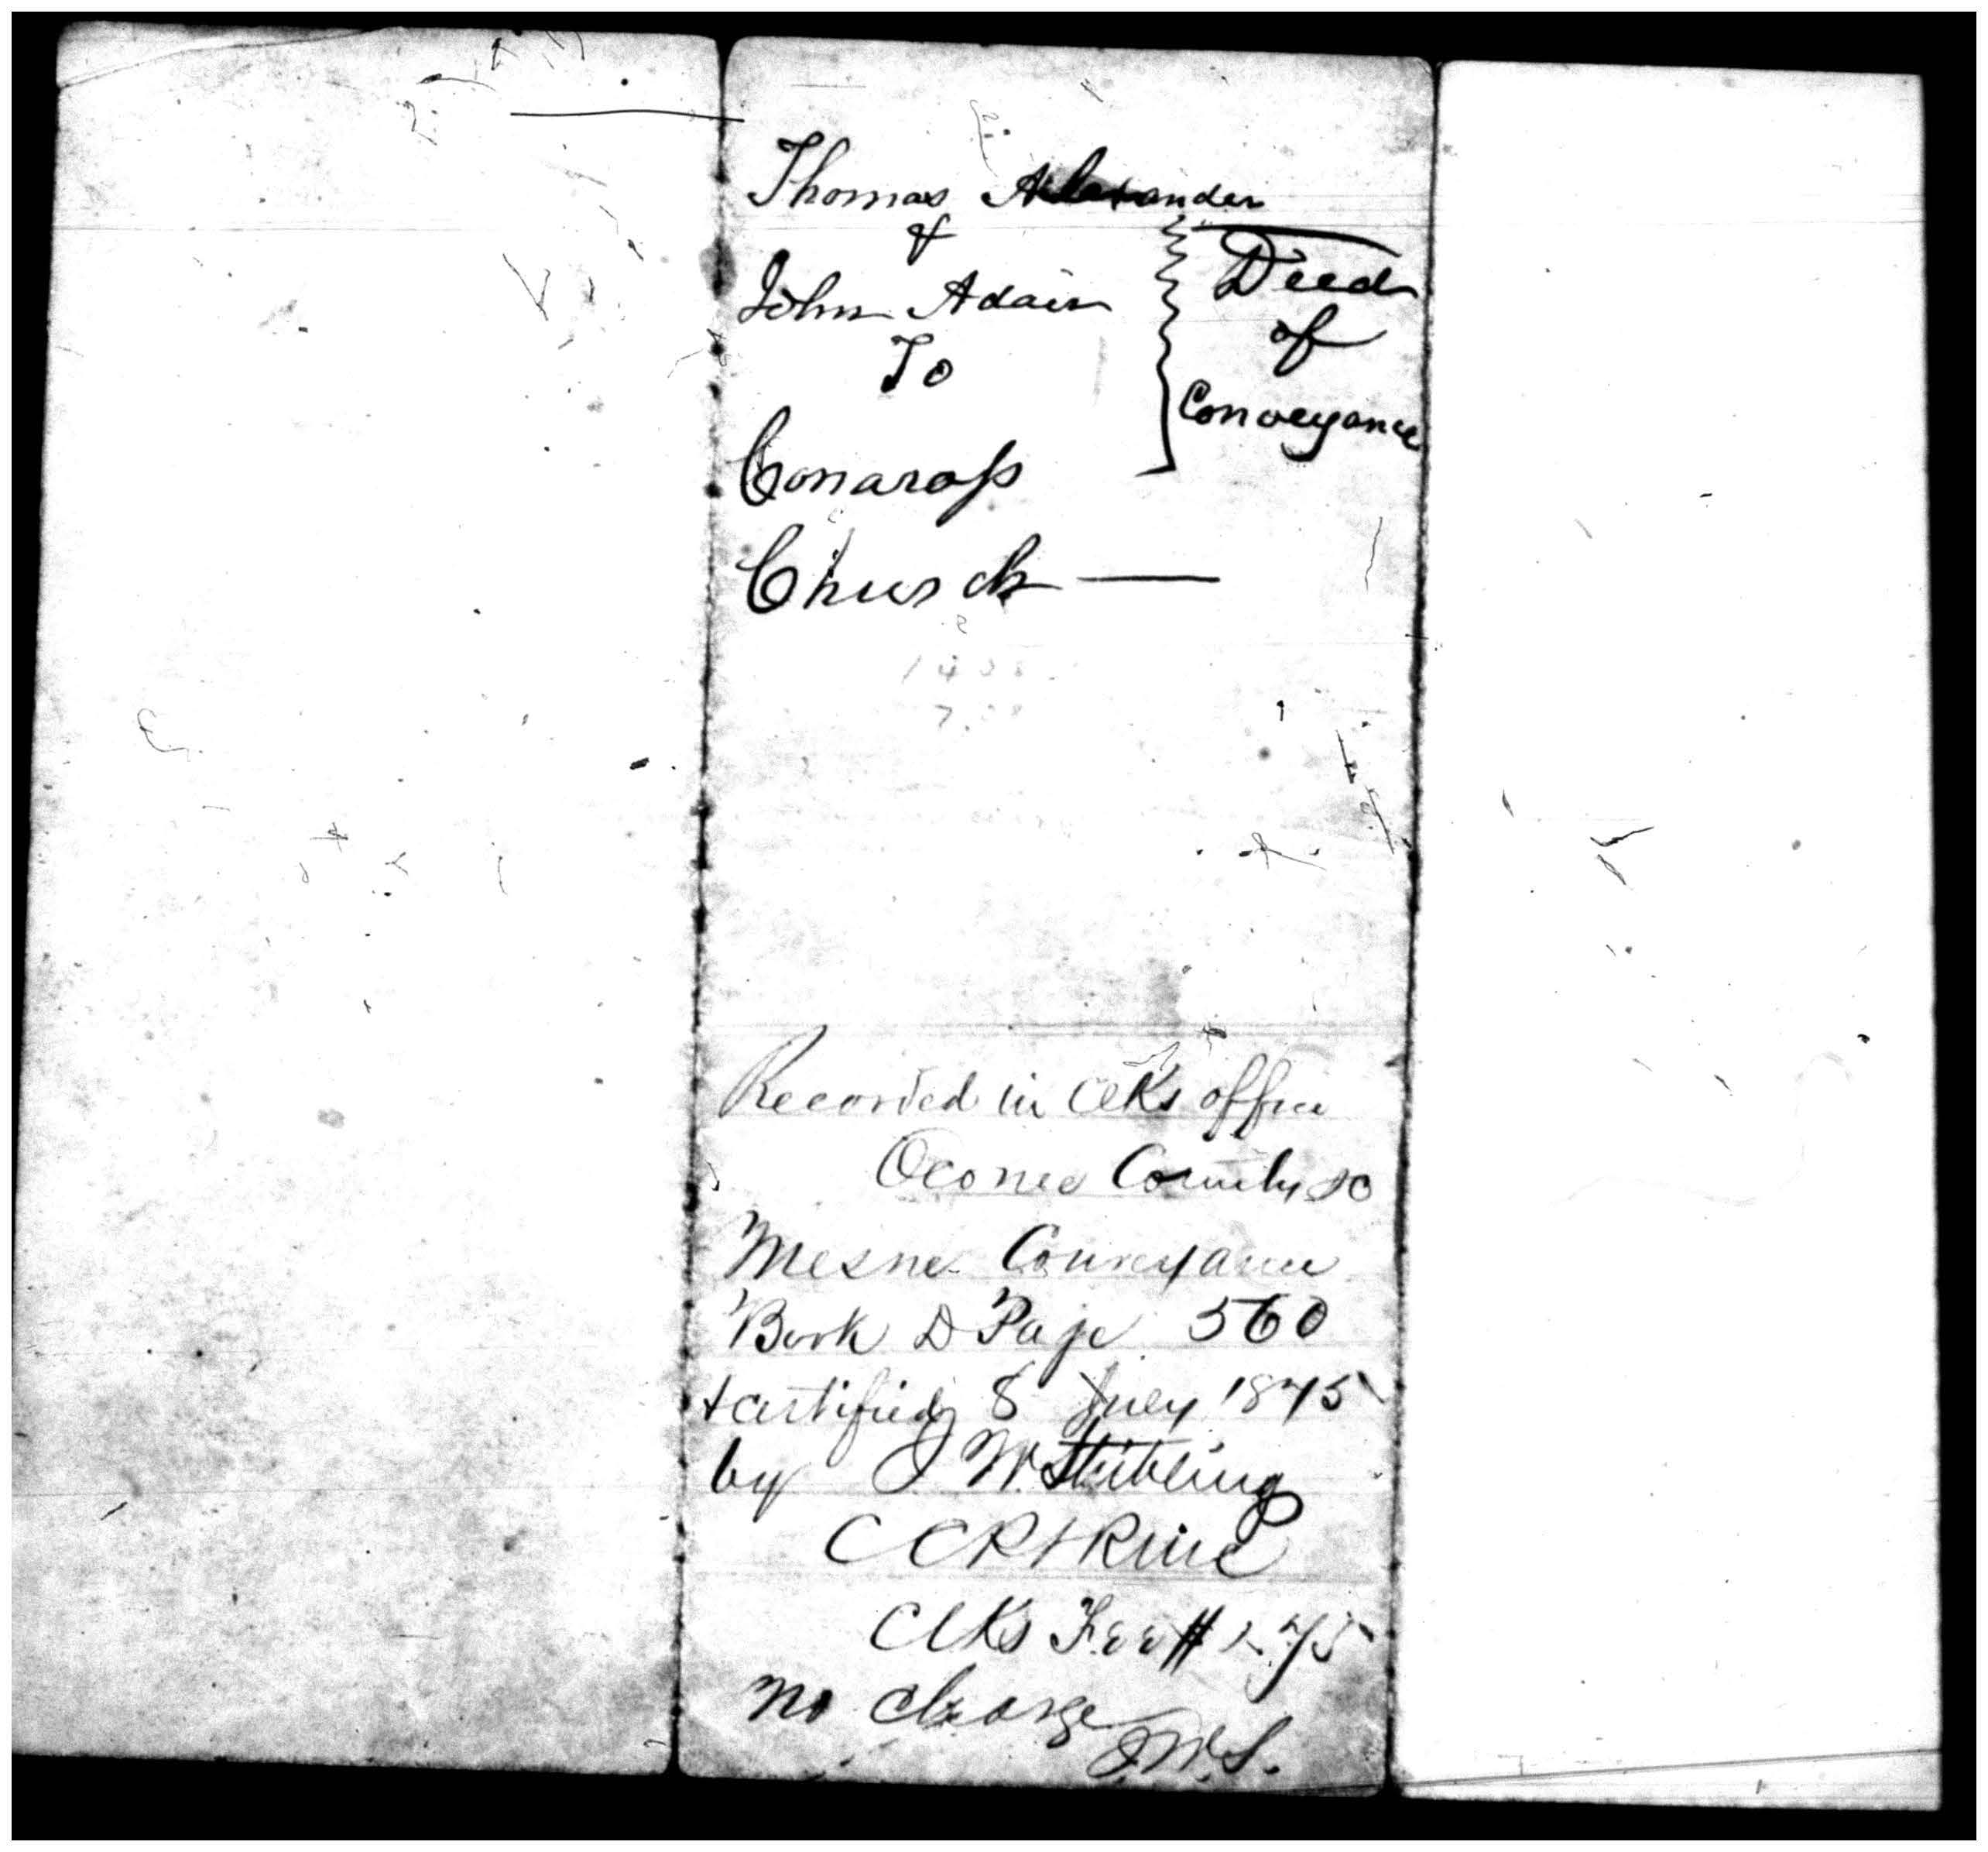 Thomas Alexander
&
John Adair
To
Conaross
Church —
Deed
of
Conveyance
Recorded in Clks office
Oconee County SC
Mesne Conveyance
Book D Page 560
& certified 8 July 1875
by J W Stribling
CCP & RMC
Clks Fee $ 1.75
no charge
J.W.S.